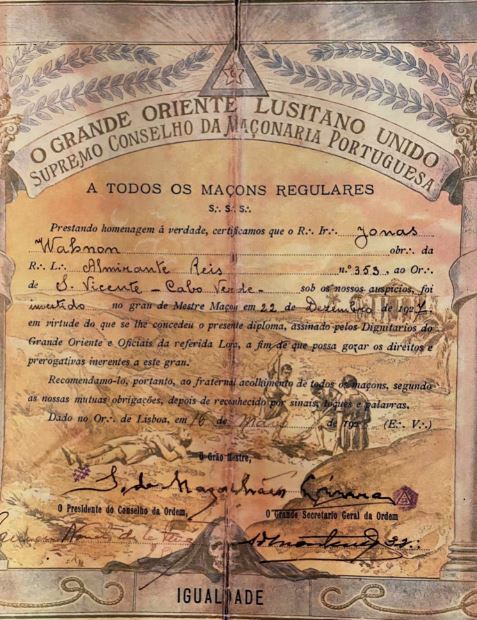 O GRANDE ORIENTE LUSITANO UNIDO
SUPREMO CONSELHO DA MAÇONARIA PORTUGUESA
A TODOS OS MAÇONS REGULARES
S∴ S∴ S∴
Prestando homenagem á verdade, certificamos que o R∴ Ir∴ Jonas
Wahnon obr∴ da
R∴ L∴ Almirante Reis n.º 353, ao Or∴
de S. Vicente - Cabo Verde - sob os nossos auspicios, foi
investido no grau de Mestre Maçon em 22 de Dezembro de 1927,
em virtude do que se lhe concedeu o presente diploma, assinado pelos Dignitarios do
Grande Oriente e Oficiais da referida Loja, a fim de que possa gozar os direitos e
prerogativas inerentes a este grau.
Recomendamo-lo, portanto, ao fraternal acolhimento de todos os maçons, segundo
as nossas mutuas obrigações, depois de reconhecido por sinais, toques e palavras.
Dado no Or∴ de Lisboa, em 16 de de 192 (E∴ V∴)
O Grão Mestre,
O Presidente do Conselho da Ordem,
O Grande Secretario Geral da Ordem
IGUALDADE